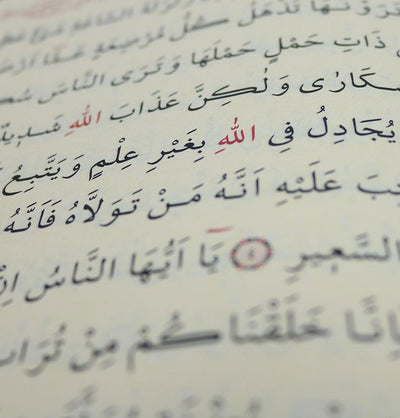 تَرَوْنَهَا تَذْهَلُ كُلُّ مُرْضِعَةٍ عَمَّا اَرْضَ
ذَاتِ حَمْلٍ حَمْلَهَا وَتَرَى النَّاسَ سُكَ
سُكَارٰى وَلٰكِنَّ عَذَابَ اللّٰهِ شَدِيدٌ
يُجَادِلُ فِي اللّٰهِ بِغَيْرِ عِلْمٍ وَيَتَّبِعُ
تِبَ عَلَيْهِ اَنَّهُ مَنْ تَوَلَّاهُ فَاَنَّهُ
السَّعِيرِ ٤ يَا اَيُّهَا النَّاسُ اِنْ
فَاِنَّا خَلَقْنَاكُمْ مِنْ تُرَابٍ